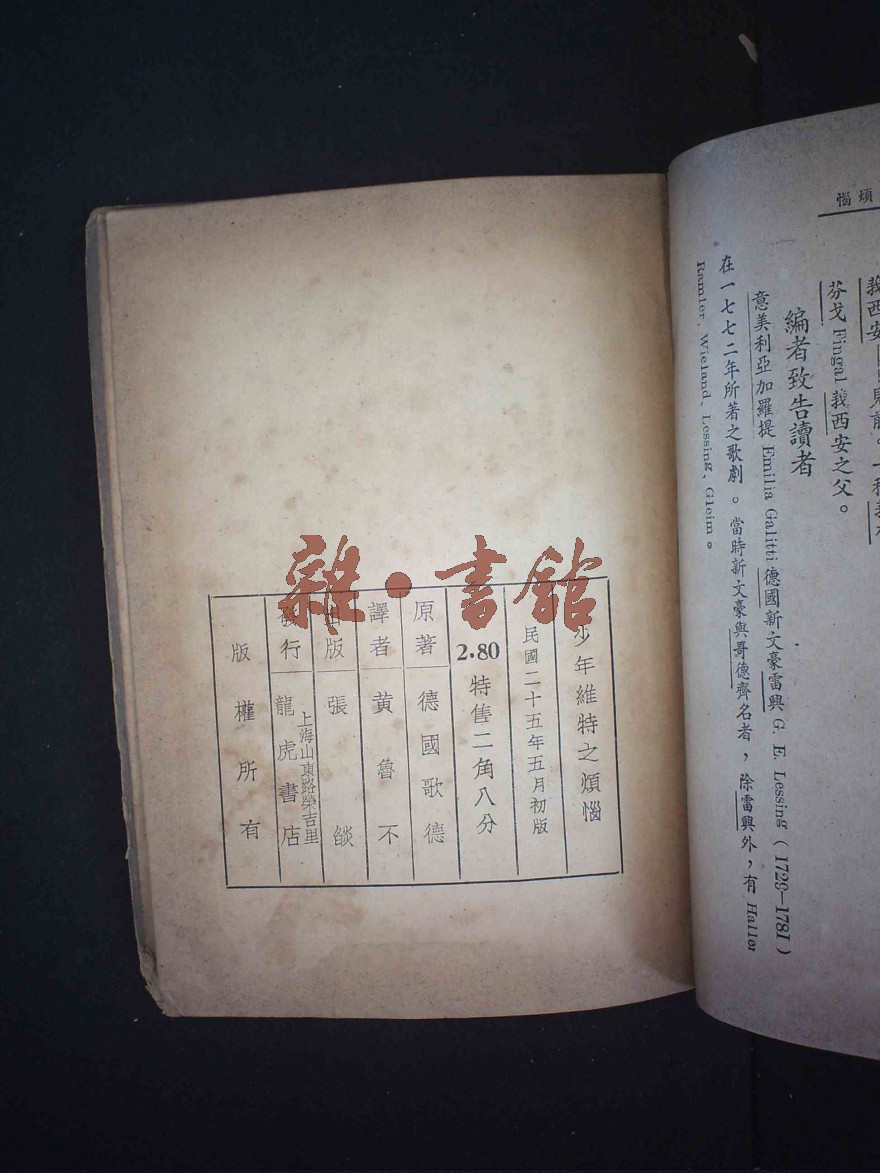 煩惱
莪西安
芬戈 Fingal 莪西安之父。
編者致告讀者
意美利亞加羅提 Emilia Galitti 德國新文豪雷興 G. E. Lessing (1729—1781)
在一七七二年所著之歌劇。當時新文豪與哥德齊名者，除雷興外，有 Haller
Ramler, Wieland, Lessing, Gleim。
雜·書館
少年維特之煩惱
民國二十五年五月初版
2.80
特售二角八分
原著 德國歌德
譯者 黃魯不
出版 張燄
上海山東路榮吉里
發行 龍虎書店
版權所有